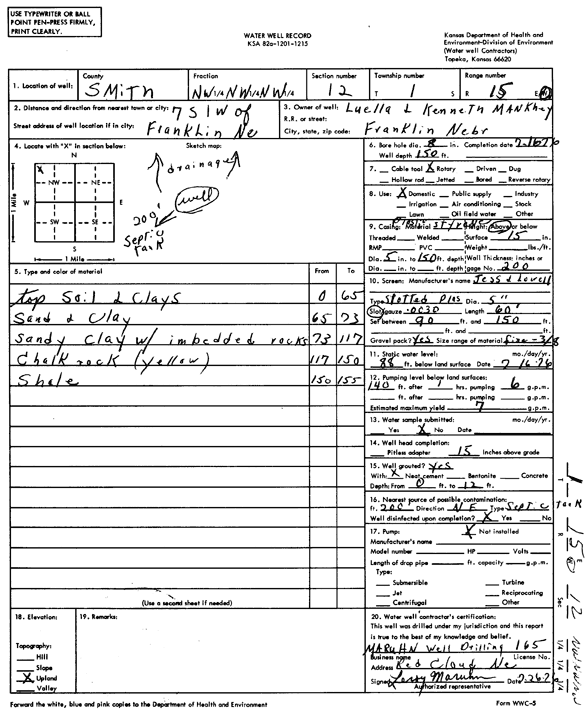 USE TYPEWRITER OR BALL
POINT PEN-PRESS FIRMLY,
PRINT CLEARLY.
WATER WELL RECORD
KSA 82a-1201-1215
Kansas Department of Health and
Environment-Division of Environment
(Water well Contractors)
Topeka, Kansas 66620
1. Location of well: County Smith Fraction NW 1/4 NW 1/4 NW 1/4 Section number 12 Township number T 1 S Range number R 15 E W
2. Distance and direction from nearest town or city: 7 S 1W of
Street address of well location if in city: Franklin Ne
3. Owner of well: Luella & Kenneth Mankhey
R.R. or street:
City, state, zip code: Franklin Nebr
4. Locate with "X" in section below: Sketch map:
N
NW NE
W E
SW SE
S
1 Mile
1 Mile
X
drainage
well
200'
Septic
Tank
5. Type and color of material From To
top Soil & Clays 0 65
Sand & Clay 65 73
Sandy Clay w/ imbedded rocks 73 117
Chalk rock (yellow) 117 150
Shale 150 155
(Use a second sheet if needed)
6. Bore hole dia. 8 in. Completion date
Well depth 150 ft.
7. Cable tool X Rotary Driven Dug
Hollow rod Jetted Bored Reverse rotary
8. Use: X Domestic Public supply Industry
Irrigation Air conditioning Stock
Lawn Oil field water Other
9. Casing: Material Styrene Height: Above or below
Threaded Welded Surface 15 in.
RMP PVC Weight lbs./ft.
Dia. 5 in. to 150 ft. depth Wall Thickness: inches or
Dia. in. to ft. depth gage No. 200
10. Screen: Manufacturer's name Jess & Lowell
Type Slotted Plas Dia. 5"
Slot gauze .0030 Length 60'
Set between 90 ft. and 150 ft.
ft. and ft.
Gravel pack? Yes Size range of material Size -3/8
11. Static water level: mo./day/yr.
88 ft. below land surface Date 7 16 76
12. Pumping level below land surfaces:
140 ft. after 1 hrs. pumping 6 g.p.m.
ft. after hrs. pumping g.p.m.
Estimated maximum yield 7 g.p.m.
13. Water sample submitted: mo./day/yr.
Yes X No Date
14. Well head completion:
Pitless adapter 15 Inches above grade
15. Well grouted? yes
With: X Neat cement Bentonite Concrete
Depth: From 0 ft. to 12 ft.
16. Nearest source of possible contamination:
ft. 200 Direction NE Type Septic Tank
Well disinfected upon completion? X Yes No
17. Pump: X Not installed
Manufacturer's name
Model number HP Volts
Length of drop pipe ft. capacity g.p.m.
Type:
Submersible Turbine
Jet Reciprocating
Centrifugal Other
18. Elevation:
Topography:
Hill
Slope
X Upland
Valley
19. Remarks:
20. Water well contractor's certification:
This well was drilled under my jurisdiction and this report
is true to the best of my knowledge and belief.
MARUHN Well Drilling 165
Business name License No.
Address Red Cloud Ne
Signed Leroy Maruhn Date 7.26.7
Authorized representative
Forward the white, blue and pink copies to the Department of Health and Environment
Form WWC-5
T 1 R 15 E W Sec 12 NW NW NW 1/4 1/4 1/4